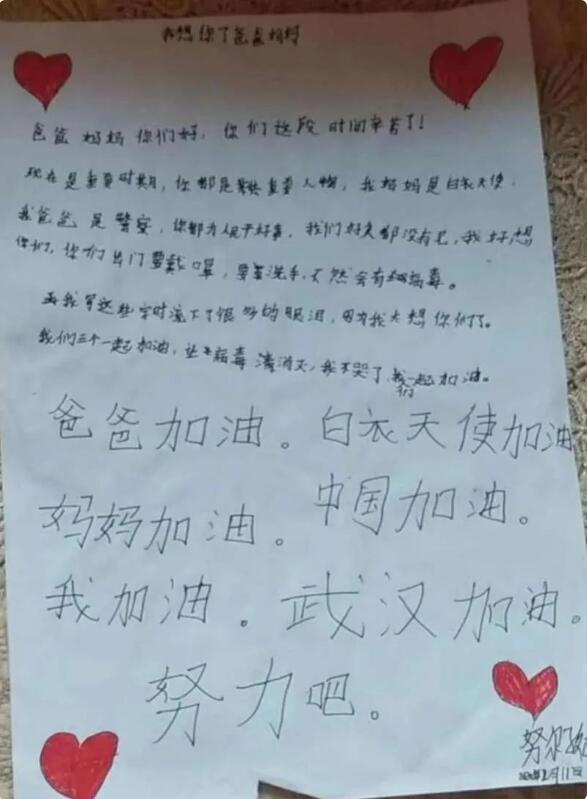 我想你了爸爸妈妈
爸爸妈妈你们好，你们这段时间辛苦了！
现在是重要时期，你都是紧要重要人物，我妈妈是白衣天使，
我爸爸是警察，你都为人民干好事，我们好久都没有见，我好想
你们，你们出门要戴口罩，要多洗手，不然会有细病毒。
我写这些字时流下了很多的眼泪，因为我太想你们了。
我们三个一起加油，让病毒消灭，我不哭了，我们一起加油。
爸爸加油。白衣天使加油
妈妈加油。中国加油。
我加油。武汉加油。
努力吧。
努尔
2月11日